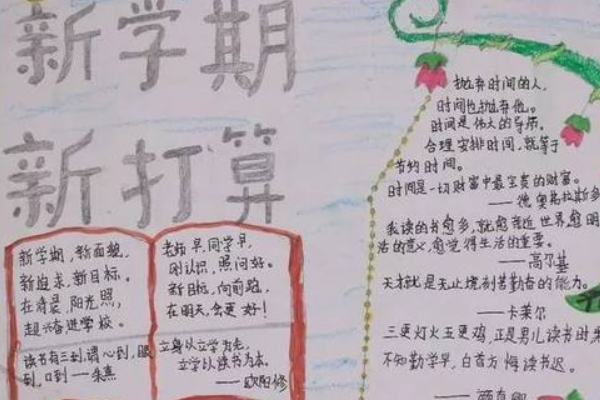 新学期
新打算
新学期,新面貌,
新追求,新目标。
在清晨,阳光照,
起兴奋进学校。
读书有三到,谓心到,眼
到,口到——朱熹
老师早,同学早,
刚认识,照问好。
新目标,向前跑,
在明天,会更好!
立身以立学为先,
立学以读书为本。
——欧阳修
抛弃时间的人,
时间也抛弃他。
时间是伟大的导师。
合理安排时间,就等于
节约时间。
时间是一切财富中最宝贵的财富。
——德奥弗拉斯多
我读的书愈多,就愈亲近世界,愈明
活的意义,愈觉得生活的重要。
——高尔基
天才就是无止境刻苦勤奋的能力。
——卡莱尔
三更灯火五更鸡,正是男儿读书时
不知勤学早,白首方悔读书迟。
——颜真卿